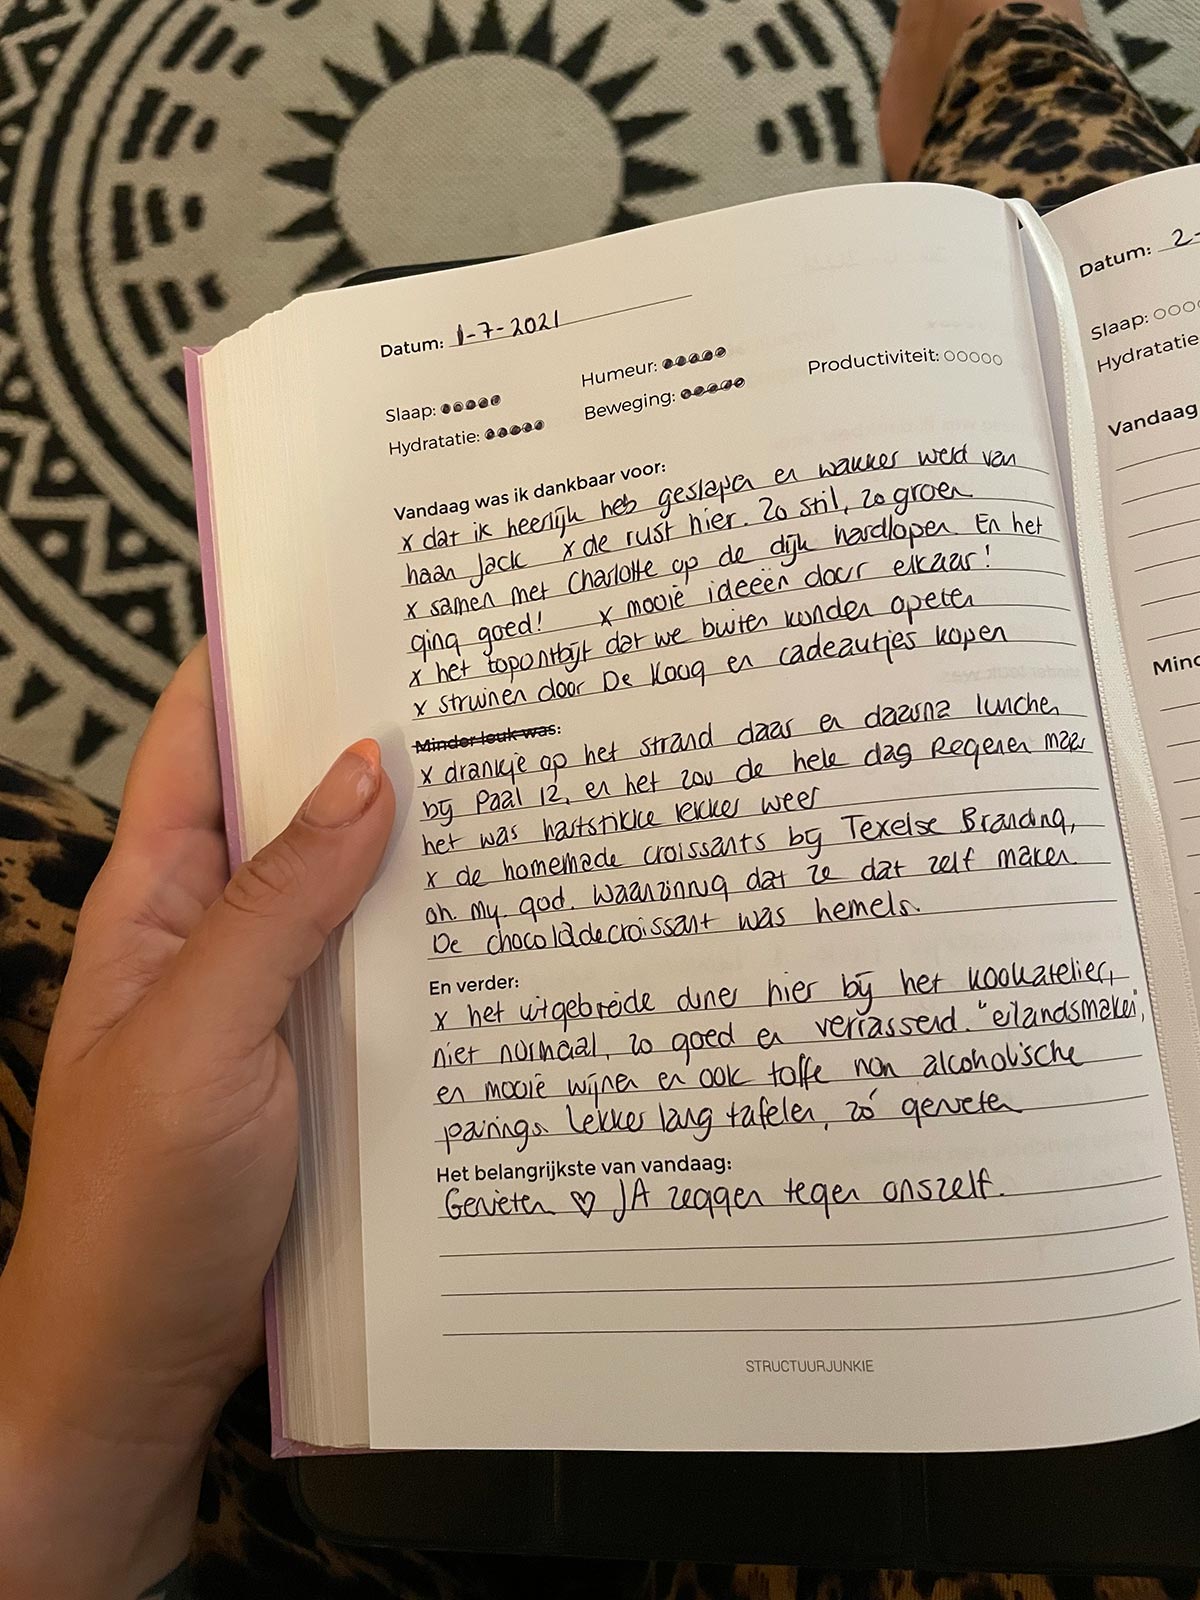 Datum: 1-7-2021
Slaap: Humeur: Productiviteit: ○○○○○
Hydratatie: Beweging:
Vandaag was ik dankbaar voor:
x dat ik heerlijk heb geslapen en wakker werd van
haan Jack x de rust hier. Zo stil, zo groen
x samen met Charlotte op de dijk hardlopen. En het
ging goed! x mooie ideeën door elkaar!
x het topontbijt dat we buiten konden opeten
x struinen door De Koog en cadeautjes kopen
Minder leuk was:
x drankje op het strand daar en daarna lunchen
bij Paal 12, en het zou de hele dag Regenen maar
het was hartstikke lekker weer
x de homemade croissants bij Texelse Branding,
oh. my. god. Waanzinnig dat ze dat zelf maken.
De chocoladecroissant was hemels.
En verder:
x het uitgebreide diner hier bij het kookatelier,
niet normaal, zo goed en verrassend. "eilandsmaken",
en mooie wijnen en ook toffe non alcoholische
pairings. Lekker lang tafelen, zó genieten
Het belangrijkste van vandaag:
Genieten ♡ JA zeggen tegen onszelf.
STRUCTUURJUNKIE
Datum: 2-
Slaap: ○○○
Hydratatie
Vandaag
Mind